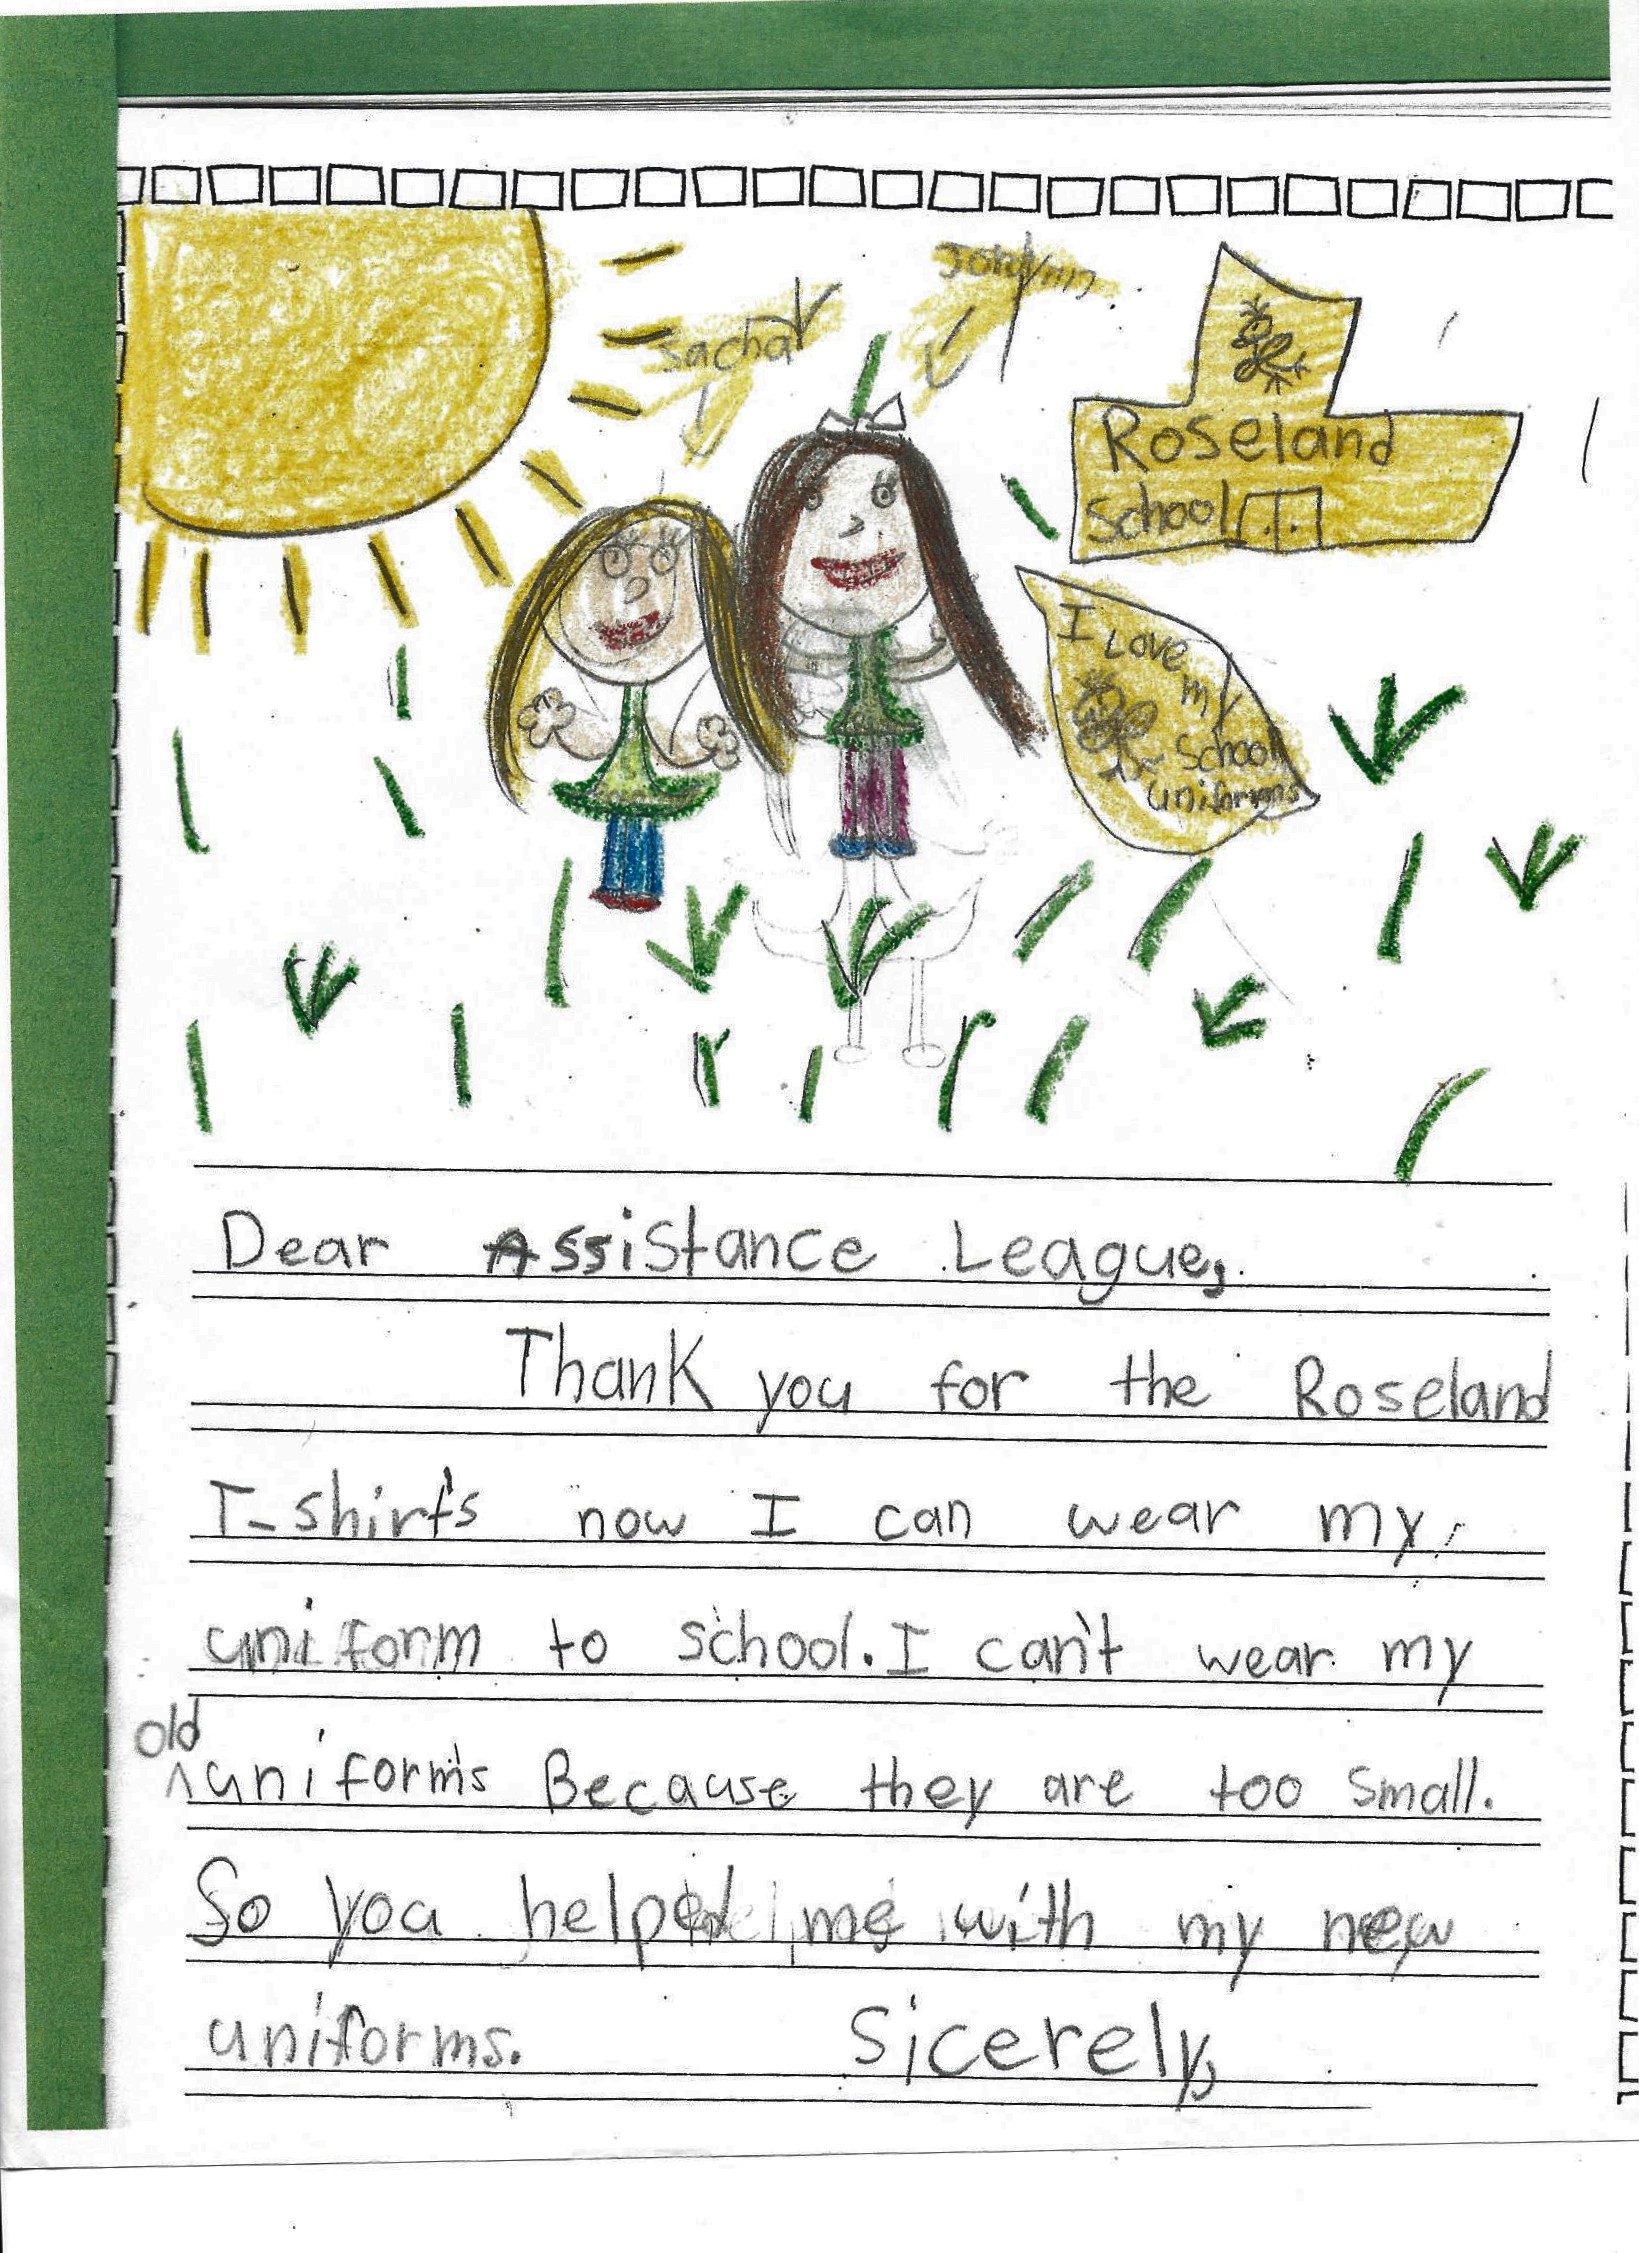 Jordynn
Sacha
Roseland
School
I Love
my
School
uniforms
Dear Assistance League,
Thank you for the Roseland
T-shirts now I can wear my
uniform to school. I can't wear my
old
^uniforms Because they are too small.
So you helped me with my new
uniforms. Sicerely,